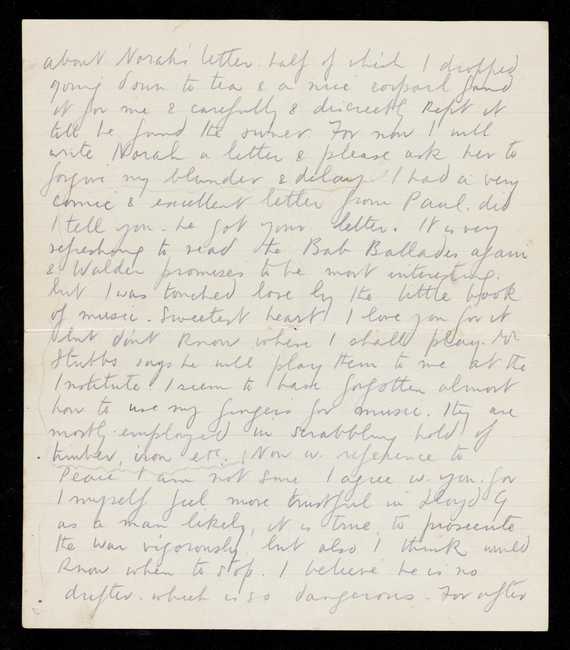 about Norah's letter half of which I dropped
going down to tea & a nice corporal found
it for me & carefully & discreetly kept it
till he found the owner. For now I will
write Norah a letter & please ask her to
forgive my blunder & delay I had a very
comic & excellent letter from Paul. did
I tell you. he got your letter. It is very
refreshing to read the Bab Ballades again
& Walden promises to be most interesting.
but I was touched by the little book
of music. Sweetest heart I love you for it
but dont know where I shall play.
Stubbs says he will play them to me at the
Institute I seem to have forgotten almost
how to use my fingers for music. They are
mostly employed in scrabbling hold of
timber, iron etc. Now w. reference to
Peace I am not sure I agree w. you. for
I myself feel more trustful in Lloyd G
as a man likely, it is true, to prosecute
the war vigorously but also I think would
know when to stop. I believe he is no
drifter. which is so dangerous. For after